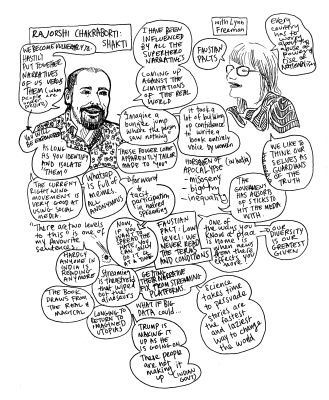 RAJORSHI CHAKRABORTI:
SHAKTI
WE BECOME VULNERABLE TO
HASTILY
PUT TOGETHER
NARRATIVES
OF US VERSUS
THEM (when
people are
I HAVE BEEN
INFLUENCED
BY ALL THE
SUPERHERO
NARRATIVES
COMING UP
AGAINST THE
LIMITATIONS
OF THE REAL
WORLD
with Lynn
Freeman
FAUSTIAN
PACTS
Every
country
has to
worry
about
abuse of
power &
rise of
NATIONALISM
Imagine a
bungee jump
where the person
saw nothing
it took a
lot of building
up confidence
to write a
book entirely
voice by women
AS LONG
AS YOU IDENTIFY
AND ISOLATE
THEM
THESE POWERS COME
APPARENTLY TAILOR
MADE TO YOU
WE LIKE TO
THINK OF
OURSELVES AS
GUARDIANS
OF THE
TRUTH
THE CURRENT
RIGHT WING
MOVEMENT IS
VERY GOOD AT
USING SOCIAL
MEDIA
Whatsapp
is full of
RUMOURS,
ALL
ANONYMOUS
a forward
is
tacit
participation
in hatred
spreading
HORSEMEN OF
APOCALYPSE
- misogyny
- bigotry
- inequality
THE
GOVERNMENT
HAS ALL SORTS
OF STICKS TO
HIT THE MEDIA
WITH
"There are two levels
to this" is one of
my favourite
sentences.
FAUSTIAN
PACT:
Low
level we
NEVER READ
THE TERMS
AND CONDITIONS
One of
the ways you
know a place
is home is
when what
happens there
effects you
more
OUR
DIVERSITY
IS OUR
GREATEST
GIVEN
HARDLY
ANYONE IN
INDIA IS
READING
ANYMORE
Streaming
is the asteroid
that wiped
out the
dinosaurs
GETTING
THEIR NARRATIVE
FIX FROM STREAMING
PLATFORMS
THE BOOK
DRAWS FROM
THE REAL &
MAGICAL
LONGING TO
RETURN TO
IMAGINED
UTOPIAS
WHAT IF BIG
DATA could...
Science
takes time
to persuade
stories are
the fastest
and laziest
way to change
the world
TRUMP IS
MAKING IT
UP AS HE
IS GOING ON.
These people
are not
making it
up (INDIAN
GOVT)